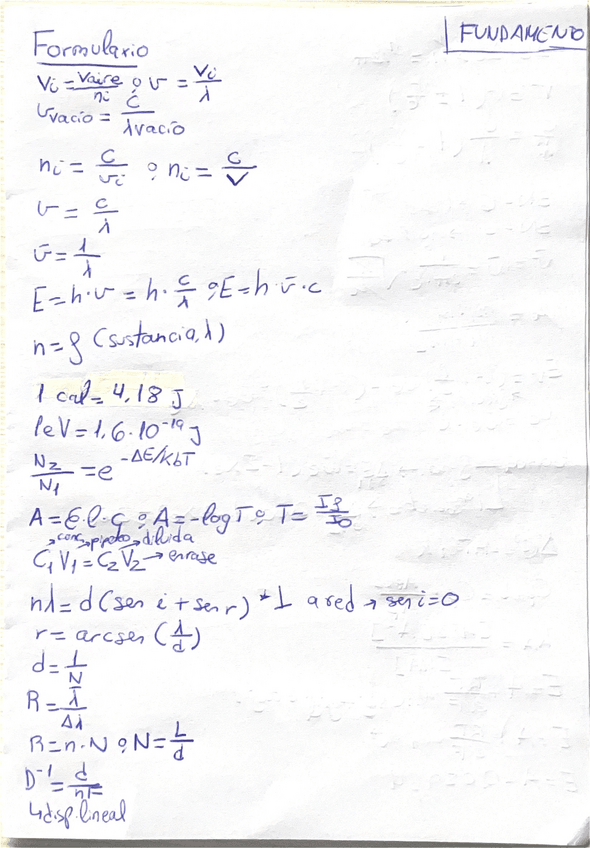 FUNDAMENTO
Formulario
Vi = Vaire/ni ; ν = Vi/λ
νvacío = c/λvacío
ni = c/vi ; ni = c/V
ν = c/λ
ν̄ = 1/λ
E = h·ν = h·c/λ ; E = h·ν̄·c
n = f (sustancia, λ)
1 cal = 4,18 J
1eV = 1,6·10⁻¹⁹ J
N2/N1 = e^(-ΔE/KbT)
A = ε·l·C ; A = -log T ; T = If/I0
→ conc → pipeta → diluida
C1V1 = C2V2 → enrase
nλ = d (sen i + sen r) * ⊥ a red → sen i = 0
r = arcsen (λ/d)
d = 1/N
R = λ̄/Δλ
R = n·N ; N = L/d
D⁻¹ = d/nF
↳ disp. lineal